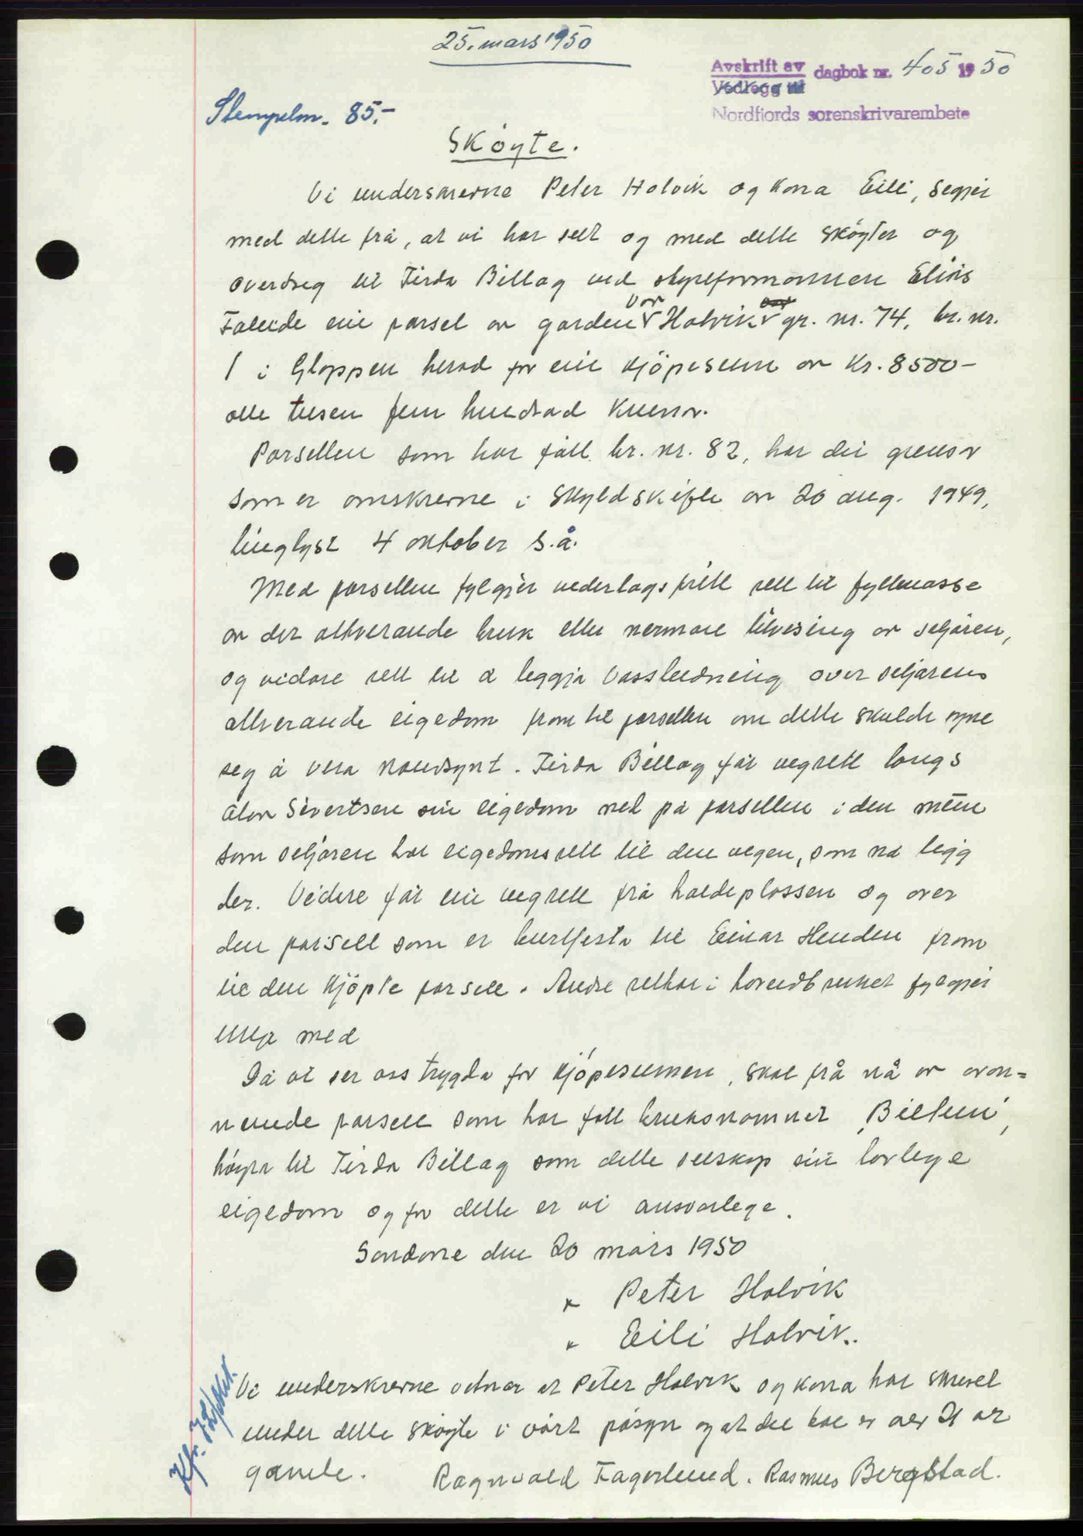 25. mars 1950
Avskrift av
Vedlegg til dagbok nr. 405 1950
Nordfjords sorenskrivarembete
Stempelm. 85.-
Skøyte.
Vi underskrevne Peter Holvik og kona Eili, segjer
med dette frå, at vi har selt og med dette skøyter og
overdreg til Firda Billag ved styreformannen Eliås
Faleide ein parsel av garden vår Holvik gr. nr. 74, br. nr.
1 i Gloppen herad for ein kjöpesum av Kr. 8500-
åtte tusen fem hundrad kroner.
Parsellen som har fått br. nr. 82, har dei grensor
som er omskrevne i skyldskifte av 20 aug. 1949,
tinglyst 4 oktober s.å.
Med parsellen fylgjer vederlagsfritt rett til fyllmasse
av det attverande bruk etter nermare tilvesing av seljaren,
og vidare rett til å leggja vassleidning over seljarens
attverande eigedom fram til parsellen om dette skulde syne
seg å vera naudsynt. Firda Billag får vegrett langs
Alov Sivertsen sin eigedom ned på parsellen i den mun
som seljaren har eigedomsrett til den vegen, som nå ligg
der. Videre får ein vegrett frå holdeplassen og over
den parsell som er burtfesta til Einar Henden fram
til den kjöpte parsell. Andre rettar i hovudbruket fylgjer
ikkje med
Då vi ser oss trygda for kjöpesummen, skal frå nå av ovan=
nemnde parsell som har fått bruksnamnet "Biltun",
høyra til Firda Billag som dette selskap sin lovlege
eigedom og for dette er vi ansvarlege.
Sandane den 20 mars 1950
x Peter Holvik
x Eili Holvik.
Vi underskrevne vitnar at Peter Holvik og kona har skrevet
under dette skøyte i vårt påsyn og at dei båe er over 21 år
gamle. Ragnvald Fagerlund. Rasmus Bergstad.